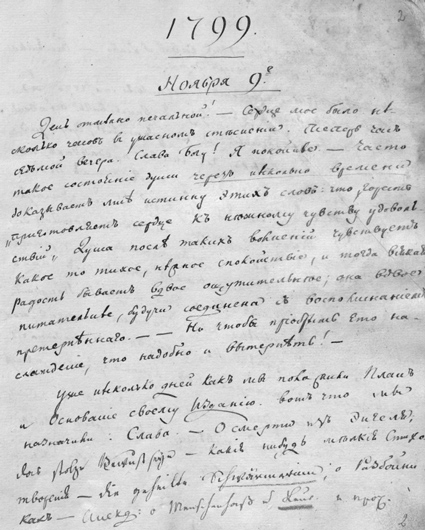 2
1799.
Ноября 9е
День отменно печальной! — Сердце мое было нѣ
сколько часовъ в ужасномъ стѣсненiи. Теперь часъ
седьмой вечера. Слава богу! Я покойнѣе. — Часто
такое состоянiе души черезъ нѣсколько времени
доказываетъ мнѣ истинну этихъ словъ: что горесть
„приготовляетъ сердце къ нѣжному чувству удоволь
ствiй„ Душа послѣ такихъ волненiй чувствуетъ
какое то тихое, нѣжное спокойствiе, и тогда всякая
радость бываетъ вдвое ощутительнѣе; она вдвое
питательнѣе, будучи соединена съ воспоминанiемъ
претерпѣннаго. — — Но чтобы прiобрѣсть ето на-
слажденiе, что надобно и вытерпѣть! —
Уже нѣсколько дней какъ мы положили Планъ
и Основанiе своему Изданiю. вотъ что мы
назначили: Слава. — О смерти изъ Энгеля;
какiя нибудь мѣлкiя Стихо
творенiя — die Schwärmerei; о Разбойни
кахъ — о и проч.
2